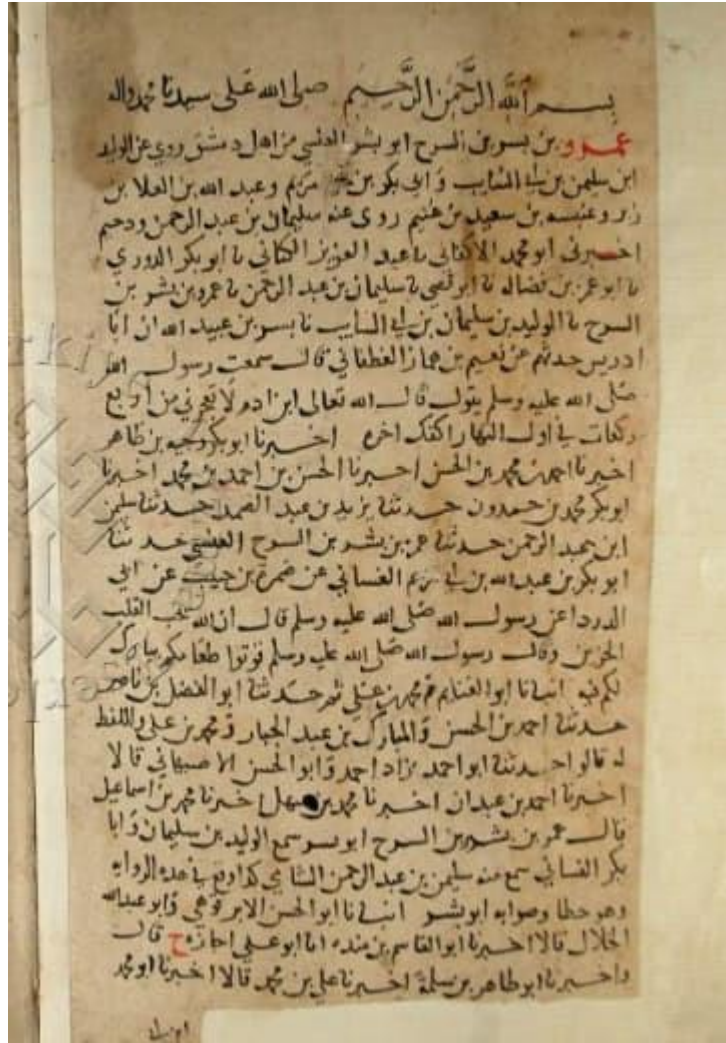 بسم الله الرحمن الرحيم صلى الله على سيدنا محمد واله
عمرو بن بسر بن السرح ابو بشر العنسي من اهل دمشق روى عن الوليد
ابن سليمن بن ابي السايب وابي بكر بن مريم وعبد الله بن العلا بن
زبر وعنبسه بن سعيد بن غنيم روى عنه سليمان بن عبد الرحمن ودحيم
اخبرنا ابو محمد الاكفاني نا عبد العزيز الكتاني نا ابو بكر الدوري
نا ابو عمر بن فضاله نا ابو قصي نا سليمان بن عبد الرحمن نا عمرو بن بشر بن
السرح نا الوليد بن سليمان بن ابي السايب نا بسر بن عبيد الله ان ابا
ادريس حدثهم عن نعيم بن همار الغطفاني قال سمعت رسول الله
صلى الله عليه وسلم يقول قال الله تعالى ابن ادم لا تعجزني من اربع
ركعات في اول النهار اكفك اخره اخبرنا ابو بكر وجيه بن طاهر
اخبرنا احمد بن محمد بن الحسن اخبرنا الحسن بن احمد بن محمد اخبرنا
ابو بكر محمد بن حمدون حدثنا يزيد بن عبد الصمد حدثنا سليمن
ابن عبد الرحمن حدثنا عمر بن بشر بن السرح العنسي حدثنا
ابو بكر بن عبد الله بن ابي مريم الغساني عن ضمرة بن حبيب عن ابي
الدردا عن رسول الله صلى الله عليه وسلم قال ان الله يحب القلب
الحزين وقال رسول الله صلى الله عليه وسلم قوتوا طعامكم يبارك
لكم فيه انبانا ابو الغنايم محمد بن علي ثم حدثنا ابو الفضل بن ناصر
حدثنا احمد بن الحسن والمبارك بن عبد الجبار ومحمد بن علي واللفظ
له قالوا حدثنا ابو احمد زاد احمد وابو الحسن الاصبهاني قالا
اخبرنا احمد بن عبدان اخبرنا محمد بن سهل اخبرنا محمد بن اسماعيل
قال عمر بن بشير بن السرح ابو بسر سمع الوليد بن سليمان وابا
بكر الغساني سمع منه سليمن بن عبد الرحمن الشامي كذا وقع في هذه الروايه
وهو خطا وصوابه ابو بشر انبانا ابو الحسن الابرقوهي وابو عبد الله
الخلال قالا اخبرنا ابو القاسم بن منده انا ابو علي اجازه ح قال
واخبرنا ابو طاهر بن سلمة اخبرنا علي بن محمد قالا اخبرنا ابو محمد